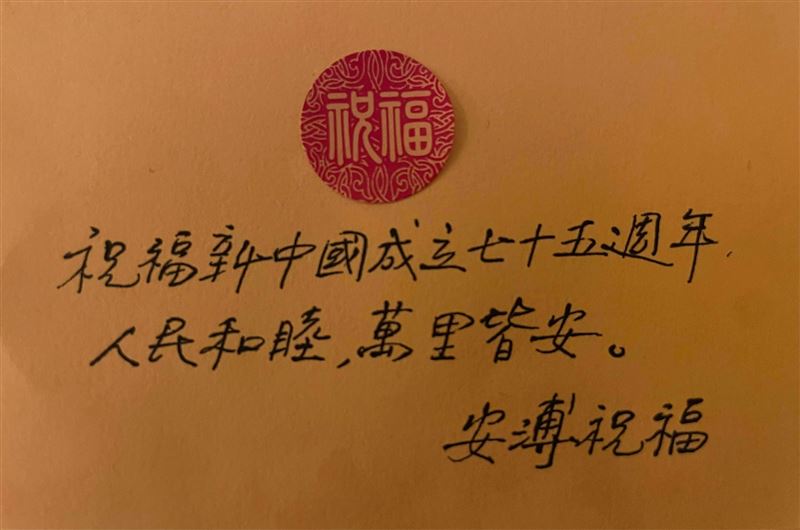 祝福
祝福新中國成立七十五週年.
人民和睦,萬里皆安。
安溥祝福